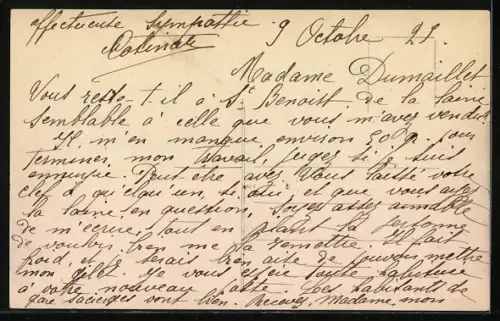 affectueuse sympathie
9 Octobre 21.
Madame Dumaillet
Vous reste-t-il à St Benoist de la laine
semblable à celle que vous m'avez vendue
Il m'en manque environ 300g. pour
terminer, mon travail, jugez si je suis
ennuyée. Peut-être avez vous laissé votre
clef à quelqu'un, si oui, et que vous ayez
la laine en question, soyez assez aimable
de m'écrire, tout en la personne
de vouloir bien me la remettre. Il fait
froid, et je serais bien aise de pouvoir mettre
mon gilet. Je vous
à votre nouveau poste. Les habitants de
gare vont bien. Recevez, Madame, mon